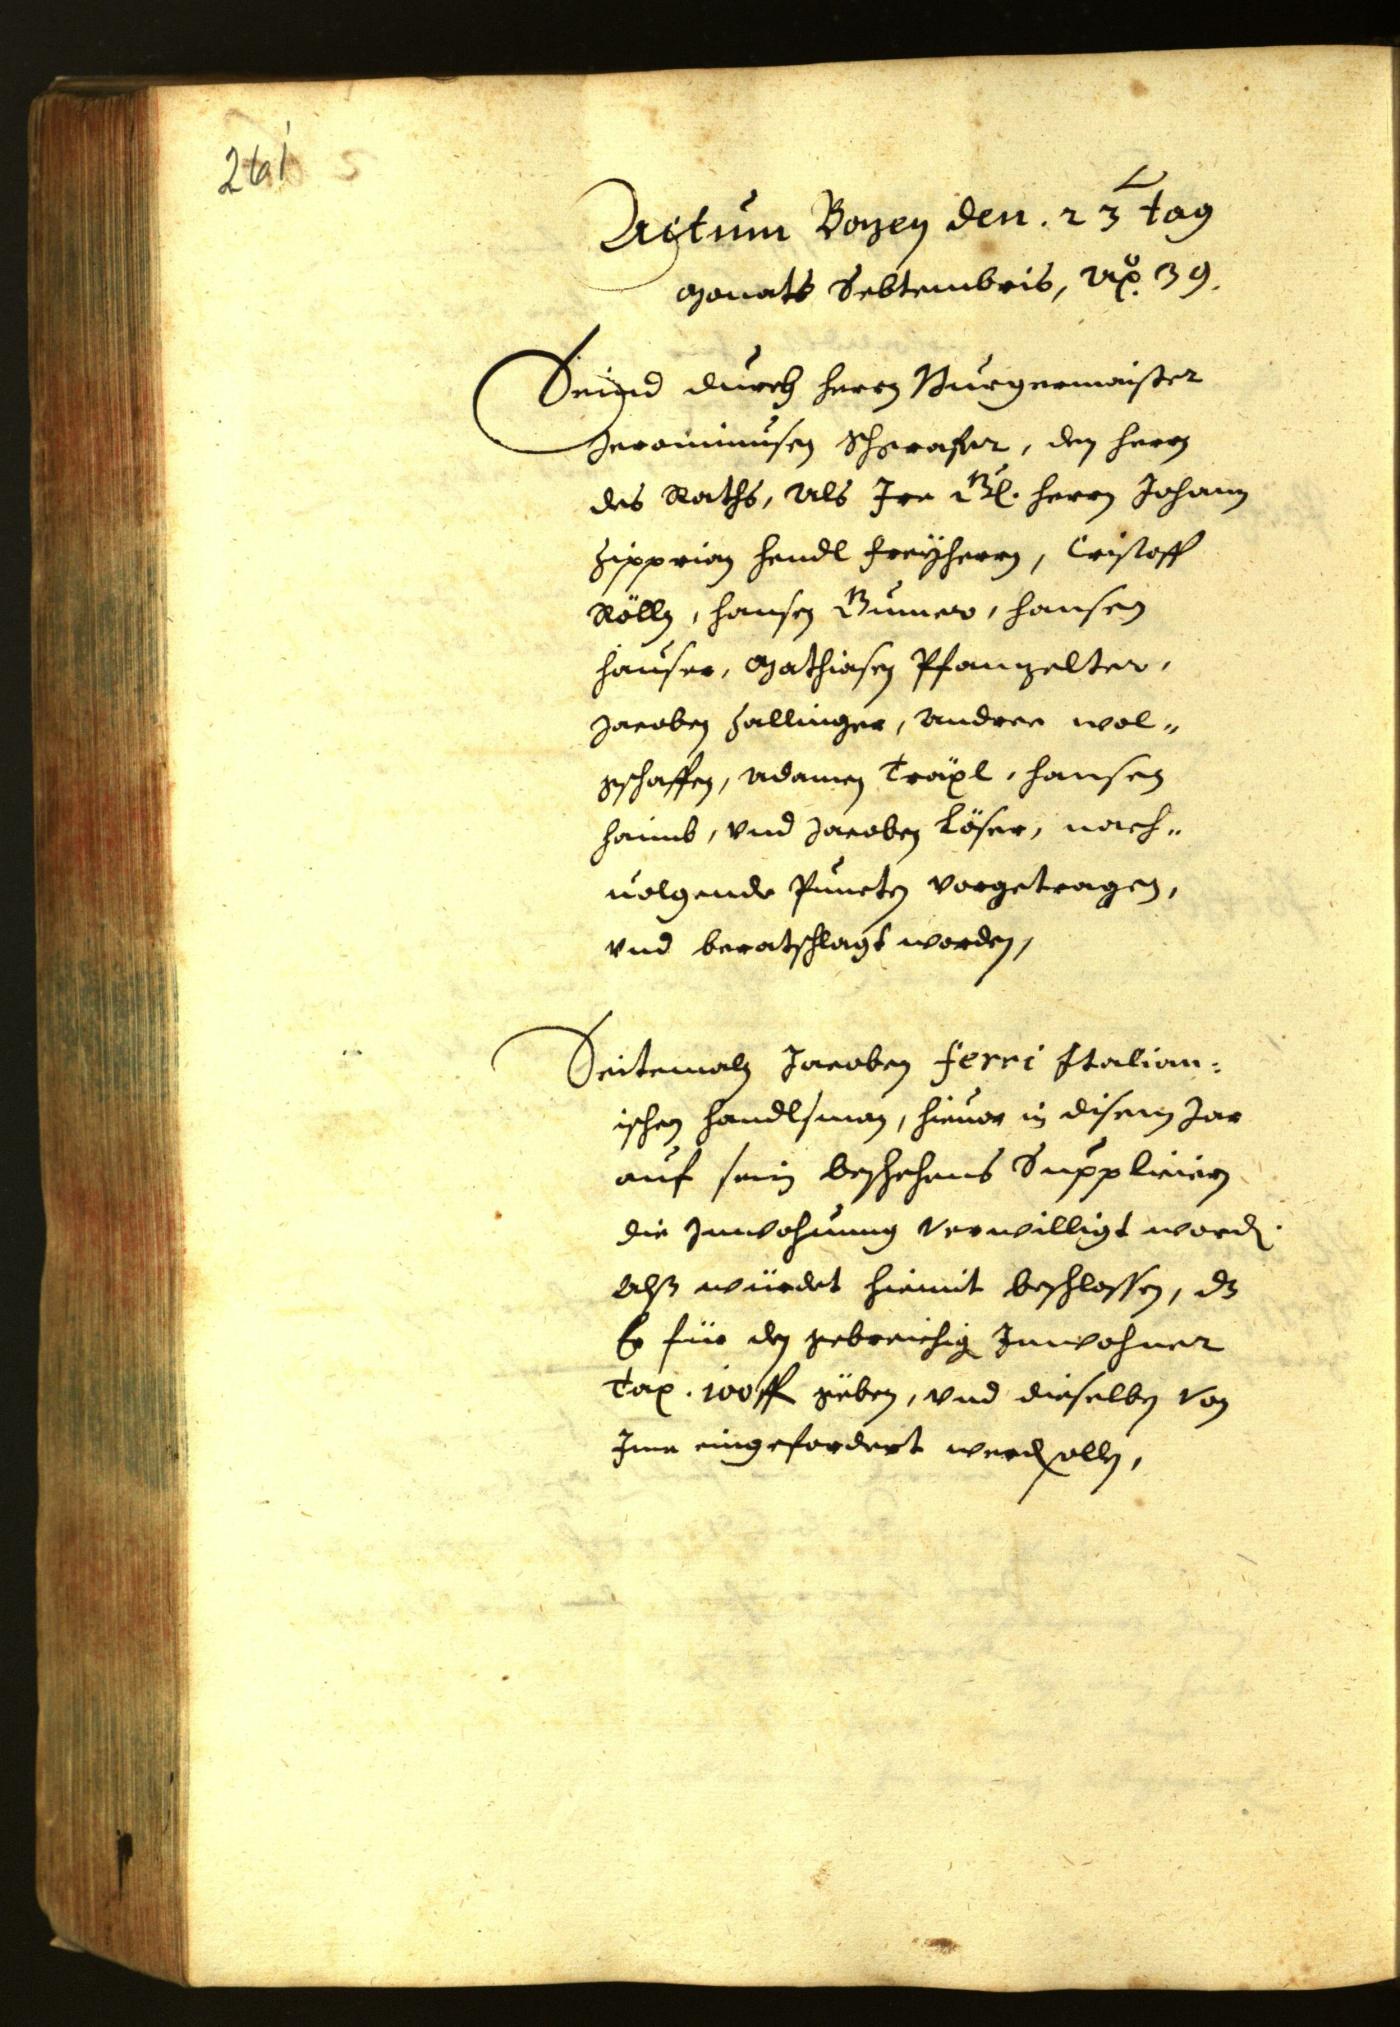 261
Actum Bozen den. 23 tag
Monats Sebtembris, Ao. 39.
Seind durch herrn Burgermaister
Jeronimusen Schgrafer, den herrn
des Raths, Als Ire Gl. herrn Johann
Zipprian hendl Freyherrn, Cristoff
Rölln, hansen Gumer, hansen
hauser, Mathiasen Pfanzelter,
Jacoben Zallinger, Andree wol„
gschaffen, Adamen Träxl, hansen
haimb, vnd Jacoben Löser, nach„
uolgende Puncten vorgetragen,
vnd beratschlagt worden,
Seitemaln Jacoben Ferri Italian:
ischen handlsman, hieuor in disem Jar
auf sein beschehens Supplicieren
die Inwohnung verwilligt word.
Alß würdet hiemit beschlossen, dz
Er für den gebreichig Inwohner
Tax. 100 ff geben, vnd dieselben von
Ime eingefordert werd sollen,